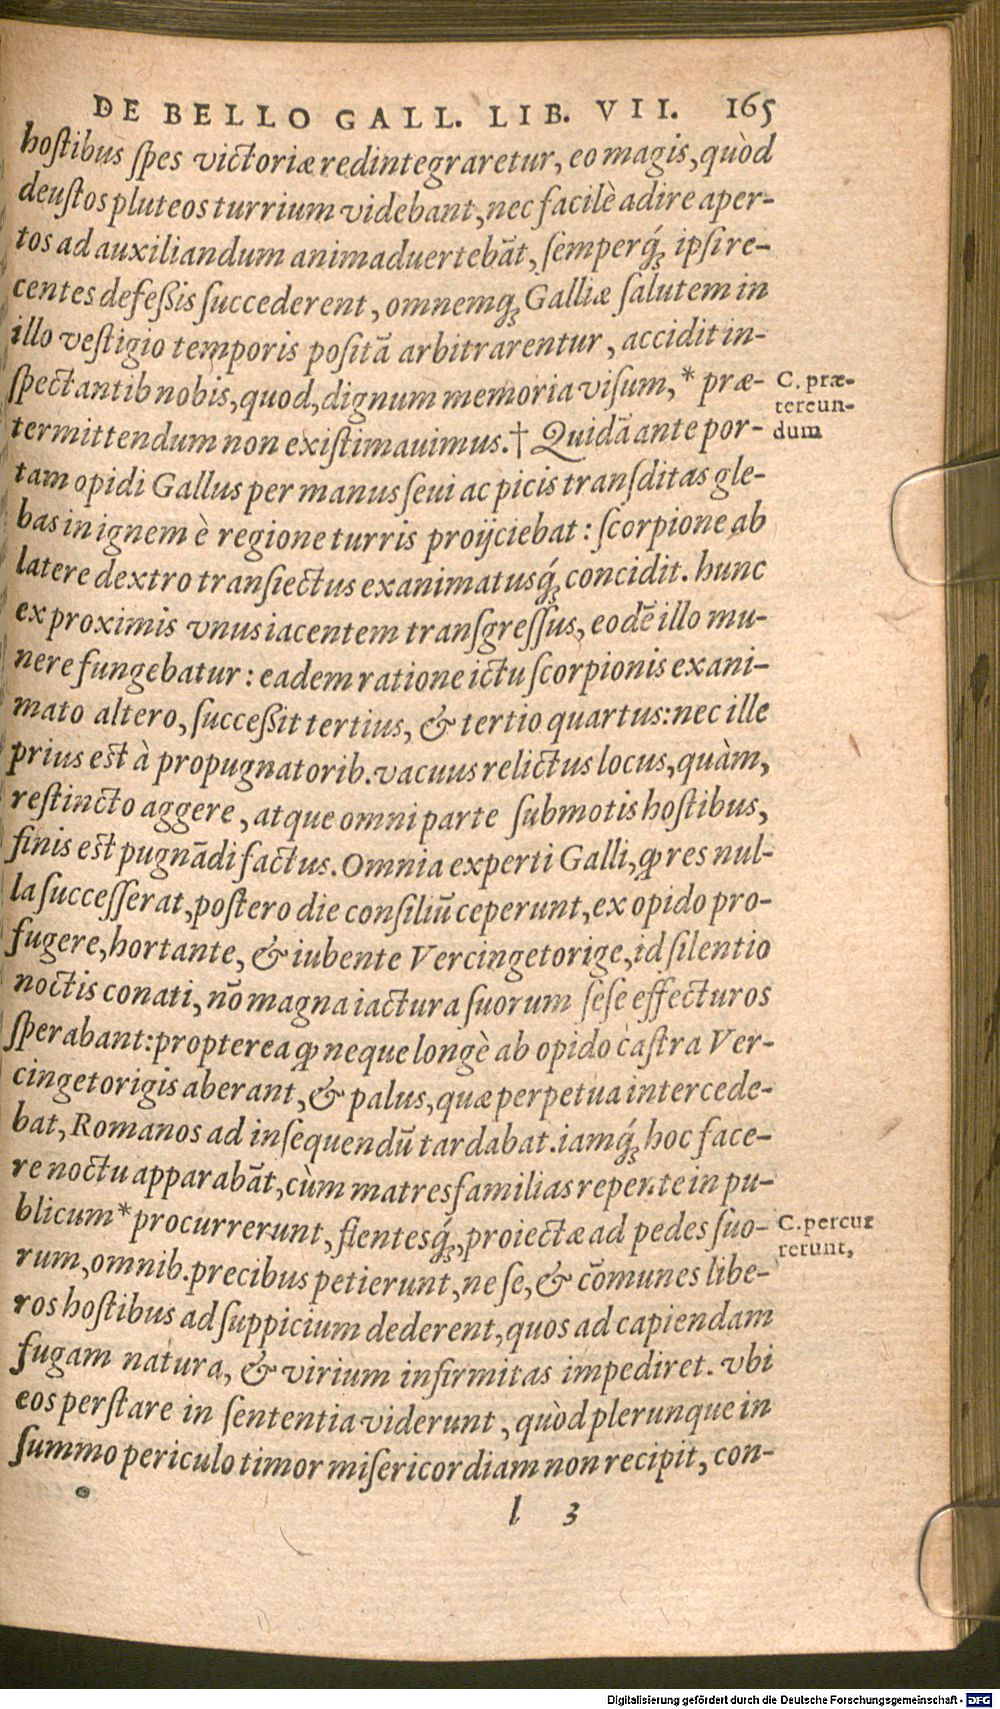 DE BELLO GALL. LIB. VII. 165
hoſtibus ſpes victoriæ redintegraretur, eo magis, quòd
deuſtos pluteos turrium videbant, nec facilè adire aper-
tos ad auxiliandum animaduertebāt, ſemperq́ꝫ ipſi re-
centes defeßis ſuccederent, omnemqꝫ Galliæ ſalutem in
illo veſtigio temporis poſitā arbitrarentur, accidit in-
ſpectantib nobis, quod, dignum memoria viſum, * præ-
C. præ-
tereun-
dum
termittendum non exiſtimauimus.† Quidā ante por-
tam opidi Gallus per manus ſeui ac picis tranſditas gle-
bas in ignem è regione turris proijciebat: ſcorpione ab
latere dextro tranſiectus exanimatusq́ꝫ concidit. hunc
ex proximis vnus iacentem tranſgreſſus, eodē illo mu-
nere fungebatur: eadem ratione ictu ſcorpionis exani-
mato altero, ſucceßit tertius, & tertio quartus: nec ille
prius est à propugnatorib. vacuus relictus locus, quàm,
reſtincto aggere, atque omni parte ſubmotis hoſtibus,
finis est pugnādi factus. Omnia experti Galli, ꝙ res nul-
la ſucceſſerat, poſtero die conſiliū ceperunt, ex opido pro-
fugere, hortante, & iubente Vercingetorige, id ſilentio
noctis conati, nō magna iactura ſuorum ſeſe effecturos
ſperabant: propterea ꝙ neque longè ab opido caſtra Ver-
cingetorigis aberant, & palus, quæ perpetua intercede-
bat, Romanos ad inſequendū tardabat. iamq́ꝫ hoc face-
re noctu apparabāt, cùm matresfamilias repente in pu-
blicum * procurrerunt, flentesq́ꝫ, proiectæ ad pedes ſuo-
C. percur
rerunt,
rum, omnib. precibus petierunt, ne ſe, & cōmunes libe-
ros hoſtibus ad ſuppicium dederent, quos ad capiendam
fugam natura, & virium infirmitas impediret. vbi
eos perſtare in ſententia viderunt, quòd plerunque in
ſummo periculo timor miſericordiam non recipit, con-
l 3
Digitalisierung gefördert durch die Deutsche Forschungsgemeinschaft - DFG